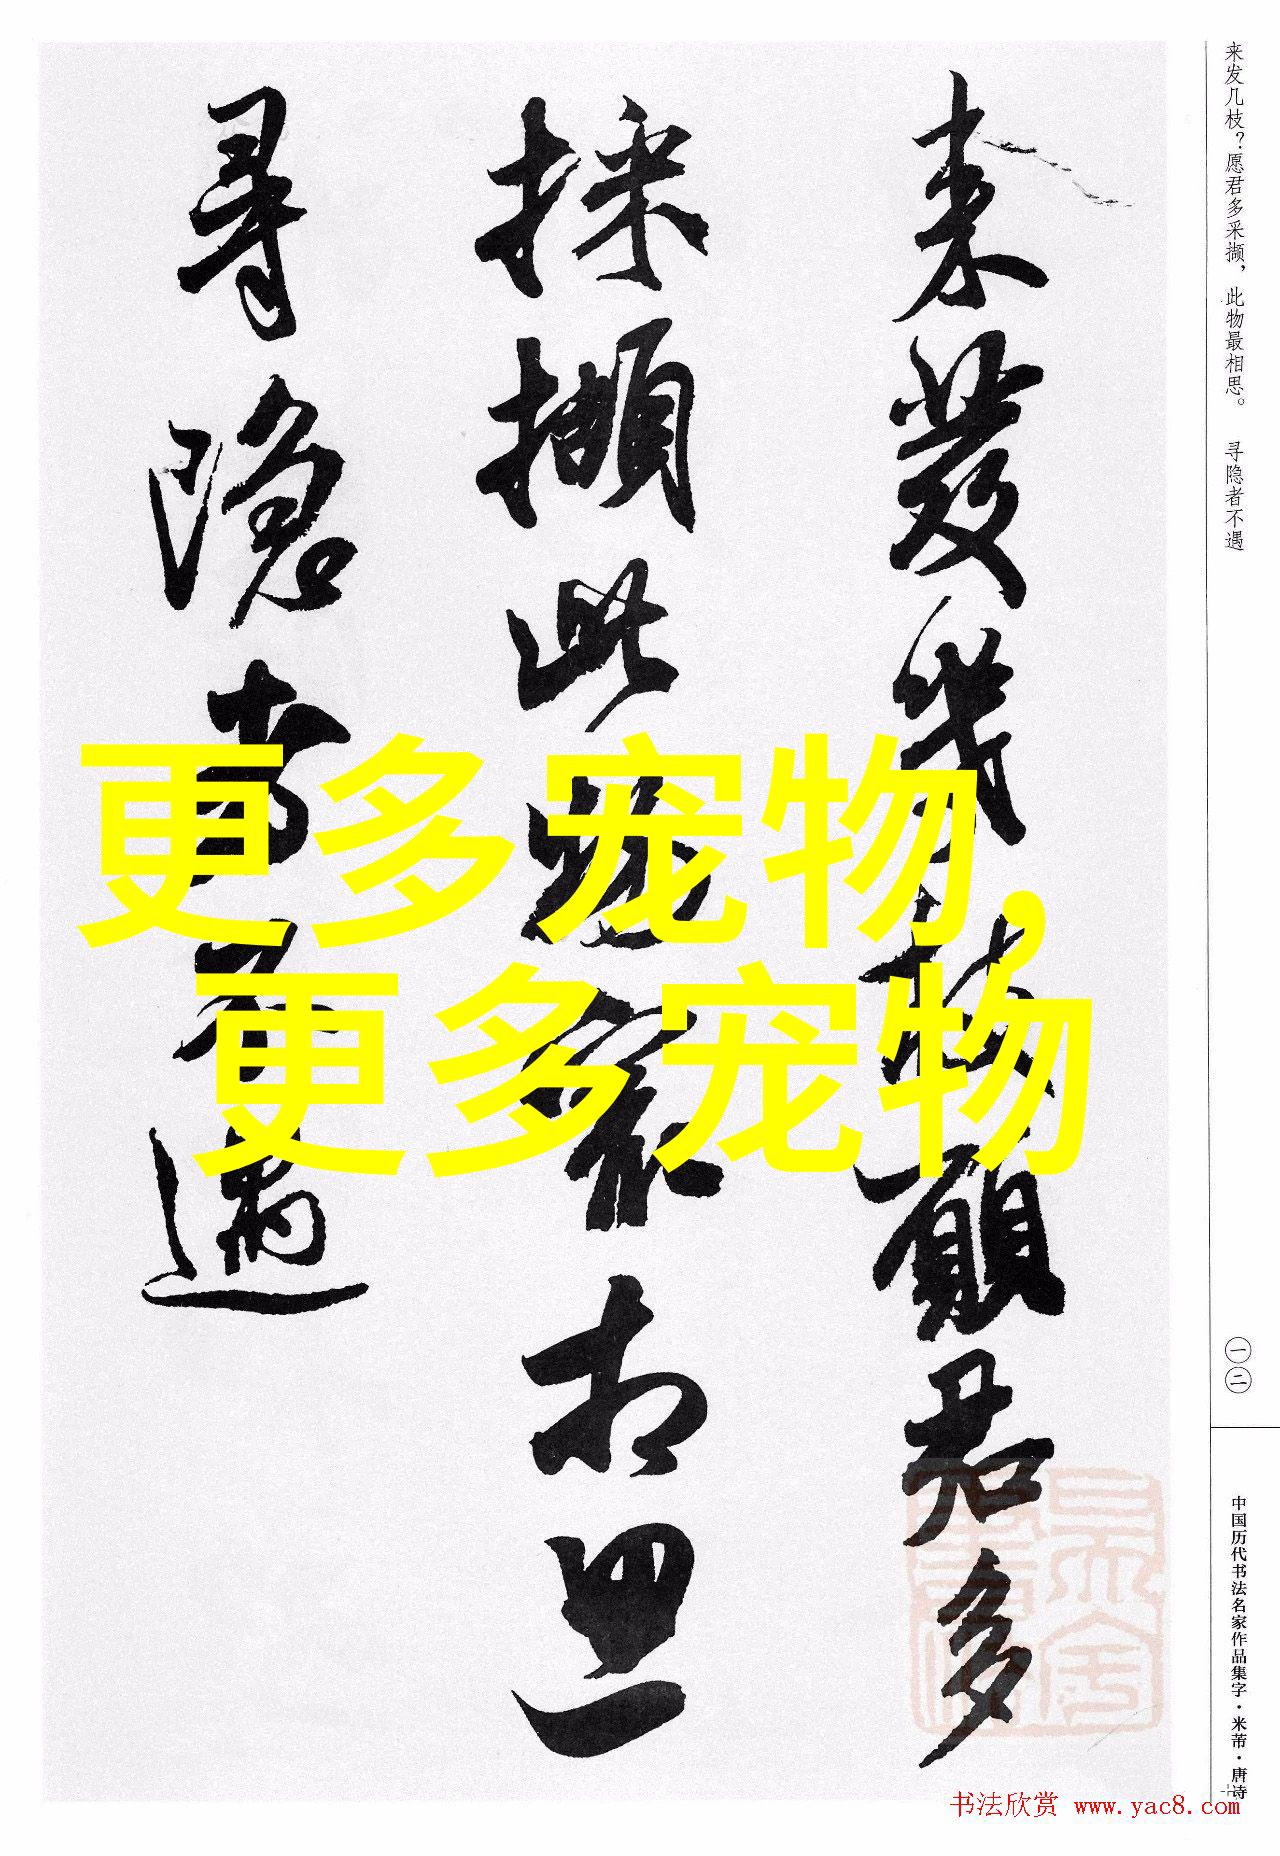 来发几枝？愿君多采撷，此物最相思。 寻隐者不遇
一二
中国历代书法名家作品集字·米芾·唐诗
來發幾枝願君多
採擷此物最相思
尋隱者不遇
更多宠物，
更多宠物
书法欣赏 www.yac8.com